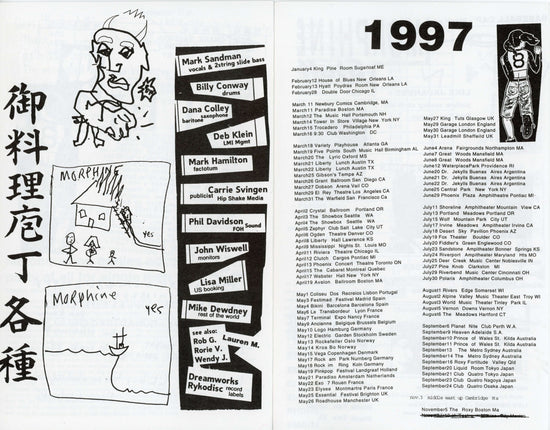 御料理庖丁各種
MORPHINE
yes
MORPHINE
yes
Mark Sandman
vocals & 2string slide bass
Billy Conway
drums
Dana Colley
saxophone
baritone
Deb Klein
LMI Mgmt
Mark Hamilton
factotum
Carrie Svingen
publicist Hip Shake Media
Phil Davidson
FOH Sound
John Wiswell
monitors
Lisa Miller
US booking
Mike Dewdney
rest of the world
see also:
Rob G. Lauren M.
Rorie V.
Wendy J.
Dreamworks
Rykodisc record labels
1997
8
January4 King Pine Room Sugarloaf ME
February12 House of Blues New Orleans LA
February13 Hyatt Poydras Room New Orleans LA
February28 Double Door Chicago IL
March 11 Newbury Comics Cambridge, MA
March11 Paradise Boston MA
March12 The Music Hall Portsmouth NH
March14 Tower In Store Village New York NY
March15 Trocadero Philadelphia PA
March16 9:30 Club Washington DC
March18 Variety Playhouse Atlanta GA
March19 Five Points South Music Hall Birmingham AL
March20 The Lyric Oxford MS
March21 Liberty Lunch Austin TX
March22 Liberty Lunch Austin TX
March25 Gibson's Tampa AZ
March26 Grant Ballroom San Diego CA
March27 Dobson Arena Vail CO
March29 El Rey Theatre Los Angeles CA
March31 The Warfield San Francisco CA
April2 Crystal Ballroom Portland OR
April3 The Showbox Seattle WA
April4 The Showbox Seattle WA
April5 Zephyr Club Salt Lake City UT
April6 Ogden Theatre Denver CO
April8 Liberty Hall Lawrence KS
April9 Mississippi Nights St. Louis MO
April11 Riviera Theatre Chicago IL
April12 Clutch Cargos Pontiac MI
April13 Phoenix Concert Theatre Toronto ON
April15 The Cabaret Montreal Quebec
April17 Webster Hall New York NY
April19 Avalon Ballroom Boston MA
May1 Coliseu Dos Recreios Lisbon Portugal
May3 Festimad Festival Madrid Spain
May4 Bikini Barcelona Spain
May6 La Transbordeur Lyon France
May7 Terminal Expo Nancy France
May9 Ancienne Belgique Brussels Belgium
May10 Logo Hamburg Germany
May12 Electric Garden Stockholm Sweden
May13 Rockefeller Oslo Norway
May14 Krøa Bo Norway
May15 Vega Copenhagen Denmark
May17 Rock am Park Nurnberg Germany
May18 Rock im Ring Koln Germany
May19 Pinkpop Festival Landgraaf Holland
May21 Paradiso Amsterdam Netherlands
May22 Exo 7 Rouen France
May23 Elysee Montmartre Paris France
May25 Essential Festival Brighton UK
May26 Roadhouse Manchester UK
May27 King Tuts Glasgow UK
May29 Garage London England
May30 Garage London England
May31 Leadmill Sheffield UK
June4 Arena Fairgrounds Northampton MA
June7 Great Woods Mansfield MA
June8 Great Woods Mansfield MA
June12 WaterplacePark Providence RI
June20 Dr. Jekylls Buenos Aires Argentina
June21 Dr. Jekylls Buenos Aires Argentina
June22 Dr. Jekylls Buenos Aires Argentina
June25 Central Park New York NY
June29 Phoenix Plaza Amphitheatre Pontiac MI
July11 Shoreline Amphitheatre Mountain View CA
July13 Portland Meadows Portland OR
July15 Wolf Mountain Park City UT
July17 Irvine Meadows Amphitheater Irvine CA
July18 Desert Sky Pavilion Phoenix AZ
July19 Fox Theater Boulder CO
July20 Fiddler's Green Englewood CO
July23 Sandstone Amphitheater Bonner Springs KS
July24 Riverport Amphitheater Maryland Hts MO
July25 Deer Creek Music Center Noblesville IN
July27 Pine Knob Clarkston MI
July29 Riverbend Music Center Cincinnati OH
July30 Polaris Amphitheater Columbus OH
August1 Rivers Edge Somerset WI
August2 Alpine Valley Music Theater East Troy WI
August3 World Music Theater Tinley Park IL
August5 Vernon Downs Vernon NY
August6 The Meadows Hartford CT
September6 Planet Nite Club Perth W.A.
September9 Heaven Adelaide S.A.
September10 Prince of Wales St. Kilda Australia
September11 Prince of Wales St. Kilda Australia
September13 The Metro Sydney Australia
September14 The Metro Sydney Australia
September16 Roxy Fortitude Valley Qld
September20 Liquid Room Tokyo Japan
September21 Club Quatro Tokyo Japan
September23 Club Quatro Nagoya Japan
September24 Club Quatro Osaka Japan
Nov.3 Middle East up Cambridge Ma
November5 The Roxy Boston Ma